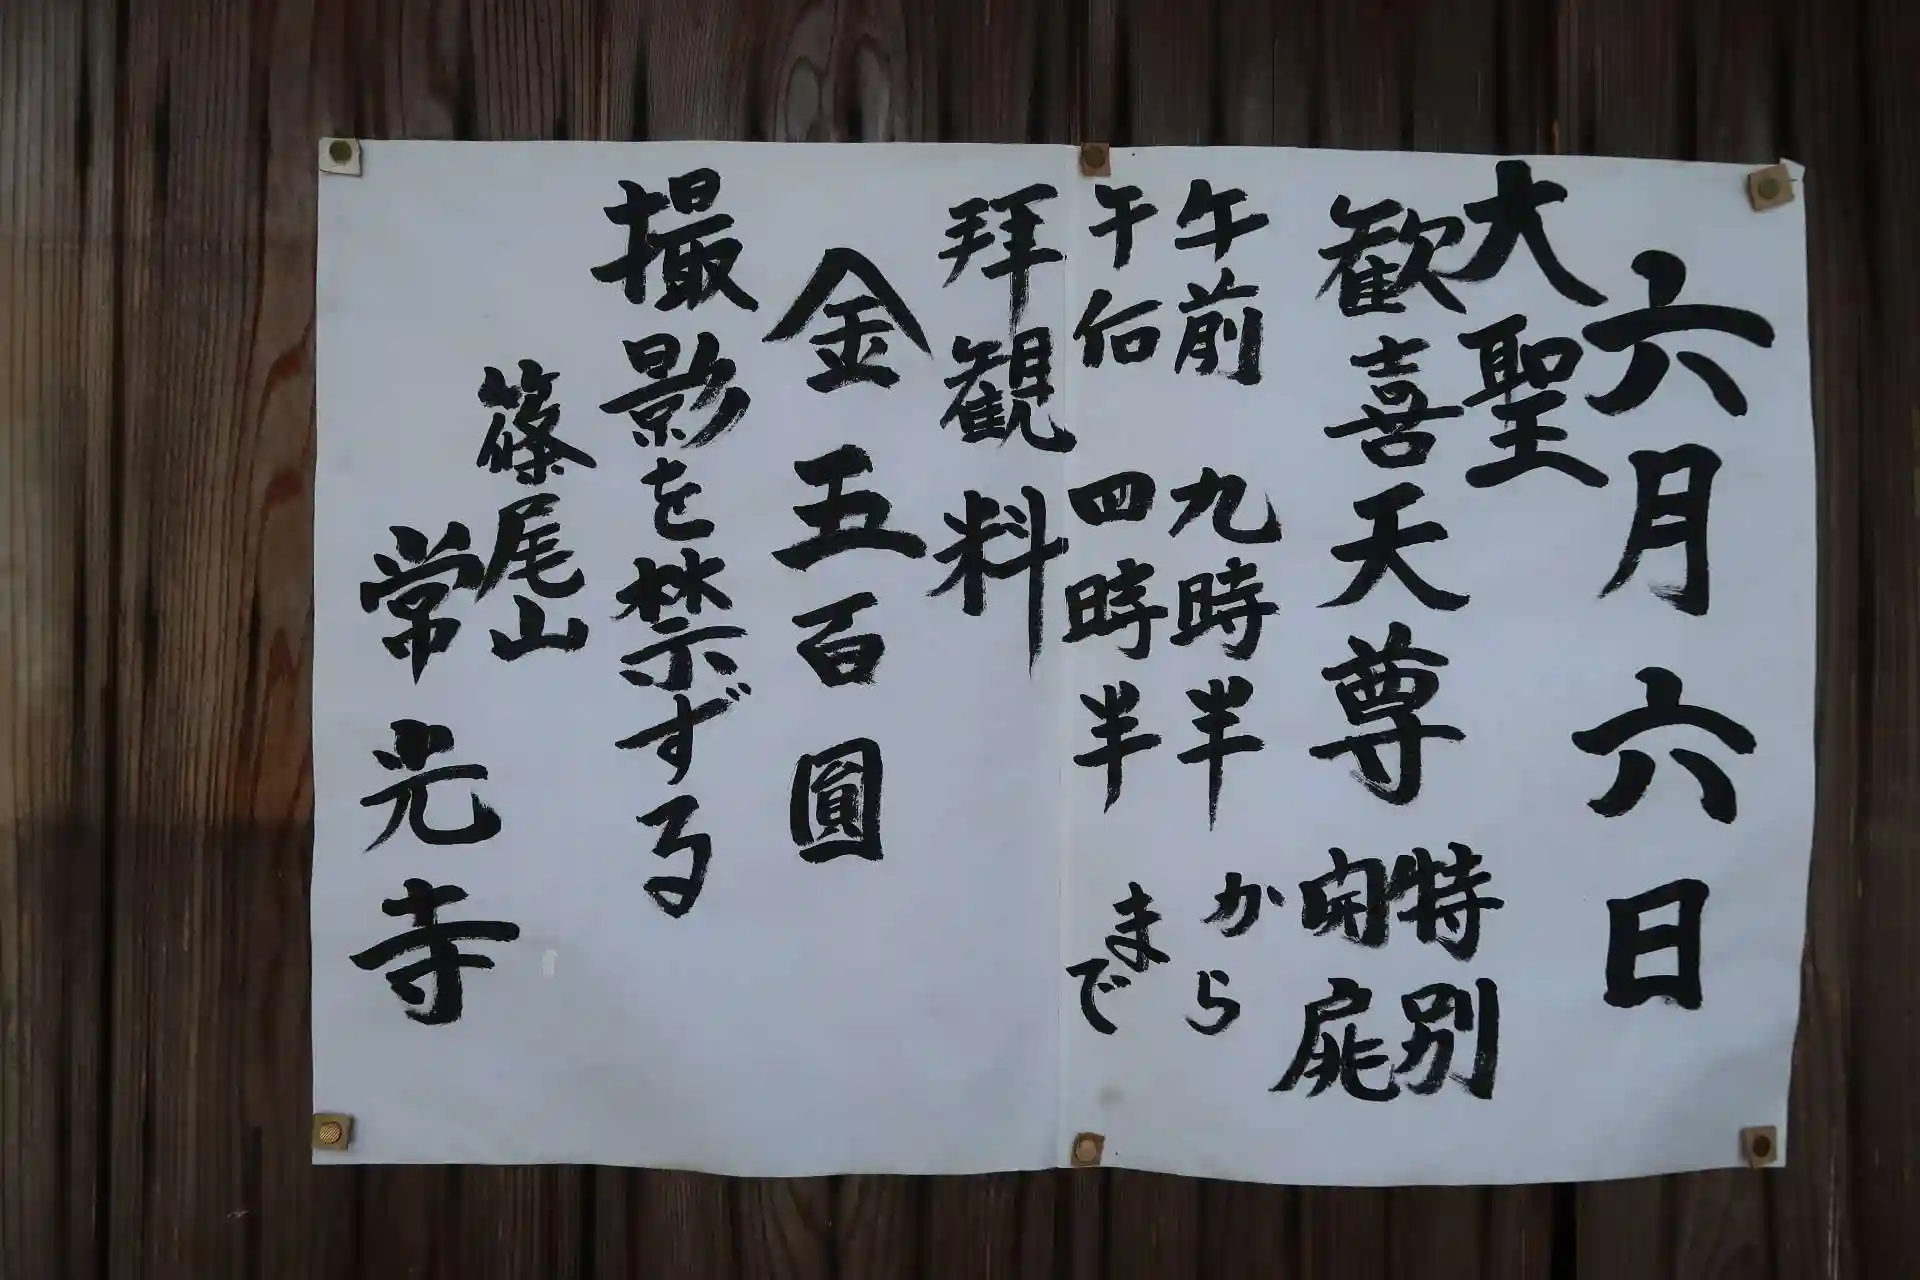 六月六日
大聖
歓喜天尊
特別
開扉
午前 九時半 から
午后 四時半 まで
拝観料
金五百圓
撮影を禁ずる
篠尾山
常光寺